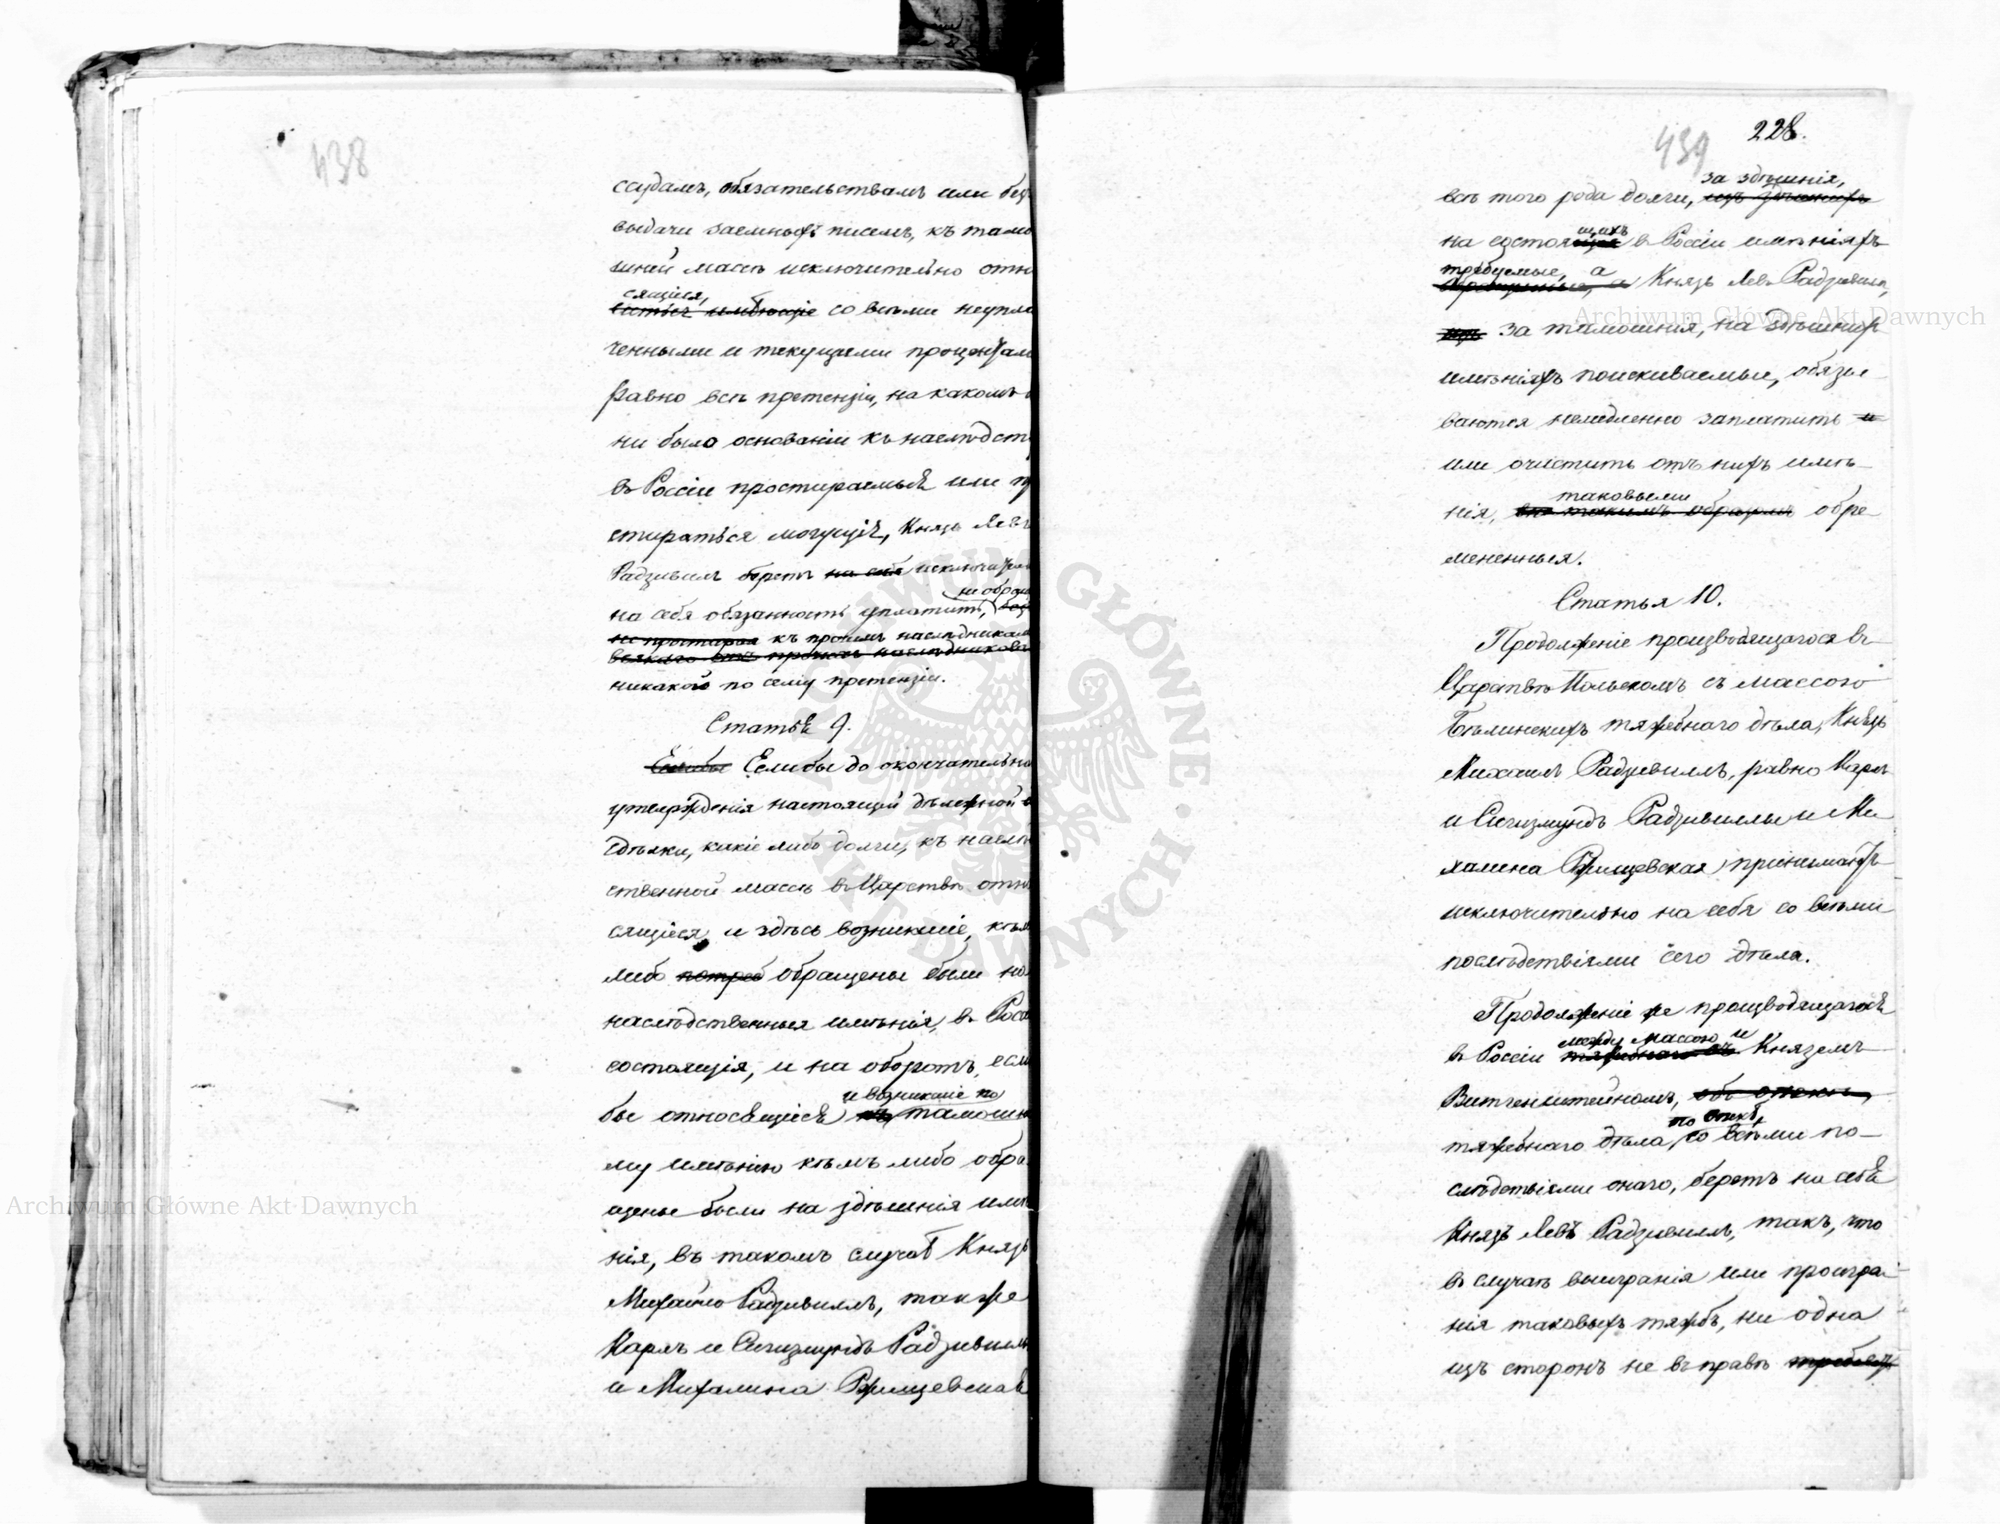 438
ссудамъ, обязательствамъ или без
выдачи заемныхъ писемъ, къ тамо
шней массѣ исключительно отно
сящіеся,
со всѣми неупла
ченными и текущими процентам
равно всѣ претензіи, на какомъ
ни было основаніи къ наслѣдст
въ Россіи простираемыя или п
стираться могущія, Князь Левъ
Радзивилъ беретъ на себя исключитель
не обра
на себя обязанность уплатить,
не простирая къ прочимъ наслѣдникам
всякаго прочихъ наслѣдниковъ
никакой по сему претензіи.
Статья 9.
Если бы Если бы до окончательна
утвержденія настоящей дѣлежной
сдѣлки, какіе либо долги, къ наслѣ
ственной массѣ въ Царствѣ отно
сящіеся и здѣсь возникшіе, кѣм
либо потреб обращены были на
наслѣдственныя имѣнія, въ Росс
состоящія, и на оборотъ, если
и возникшіе по
бы относящіеся къ тамошн
му имѣнію кѣмъ либо обра
щены были на здѣшнія имѣ
нія, въ такомъ случаѣ Князь
Михаилъ Радзивилъ, также
Карлъ и Сигизмундъ Радзивилы
и Михалина Ржищевская
439
228.
за здѣшнія,
всѣ того рода долги, изъ здѣшнихъ
щихъ
на состоящія въ Россіи имѣніяхъ
требуемые, а
а Князь Левъ Радзивилъ,
изъ за тамошнія, на здѣшнихъ
имѣніяхъ поискиваемые, обязы
ваются немедленно заплатить и
или очистить отъ нихъ имѣ-
таковыми
нія, такимъ образомъ обре-
мененныя.
Статья 10.
Продолженіе производящагося въ
Царствѣ Польскомъ съ массою
Бѣлинскихъ тяжебнаго дѣла, Князь
Михаилъ Радзивиллъ, равно Карлъ
и Сигизмундъ Радзивиллы и Ми
халина Ржищевская, принимаютъ
исключительно на себя со всѣми
послѣдствіями сего дѣла.
Продолженіе же производящагося
между массою и
въ Россіи тяжебнаго съ Княземъ
Витгенштейномъ, объ опекѣ,
по опекѣ,
тяжебнаго дѣла, со всѣми по-
слѣдствіями онаго, беретъ на себя
Князь Левъ Радзивилъ, такъ, что
въ случаѣ выигранія или проигра-
нія таковыхъ тяжбъ, ни одна
изъ сторонъ не въ правѣ требовать
Archiwum Główne Akt Dawnych
Archiwum Główne Akt Dawnych
ARCHIWUM GŁÓWNE AKT DAWNYCH